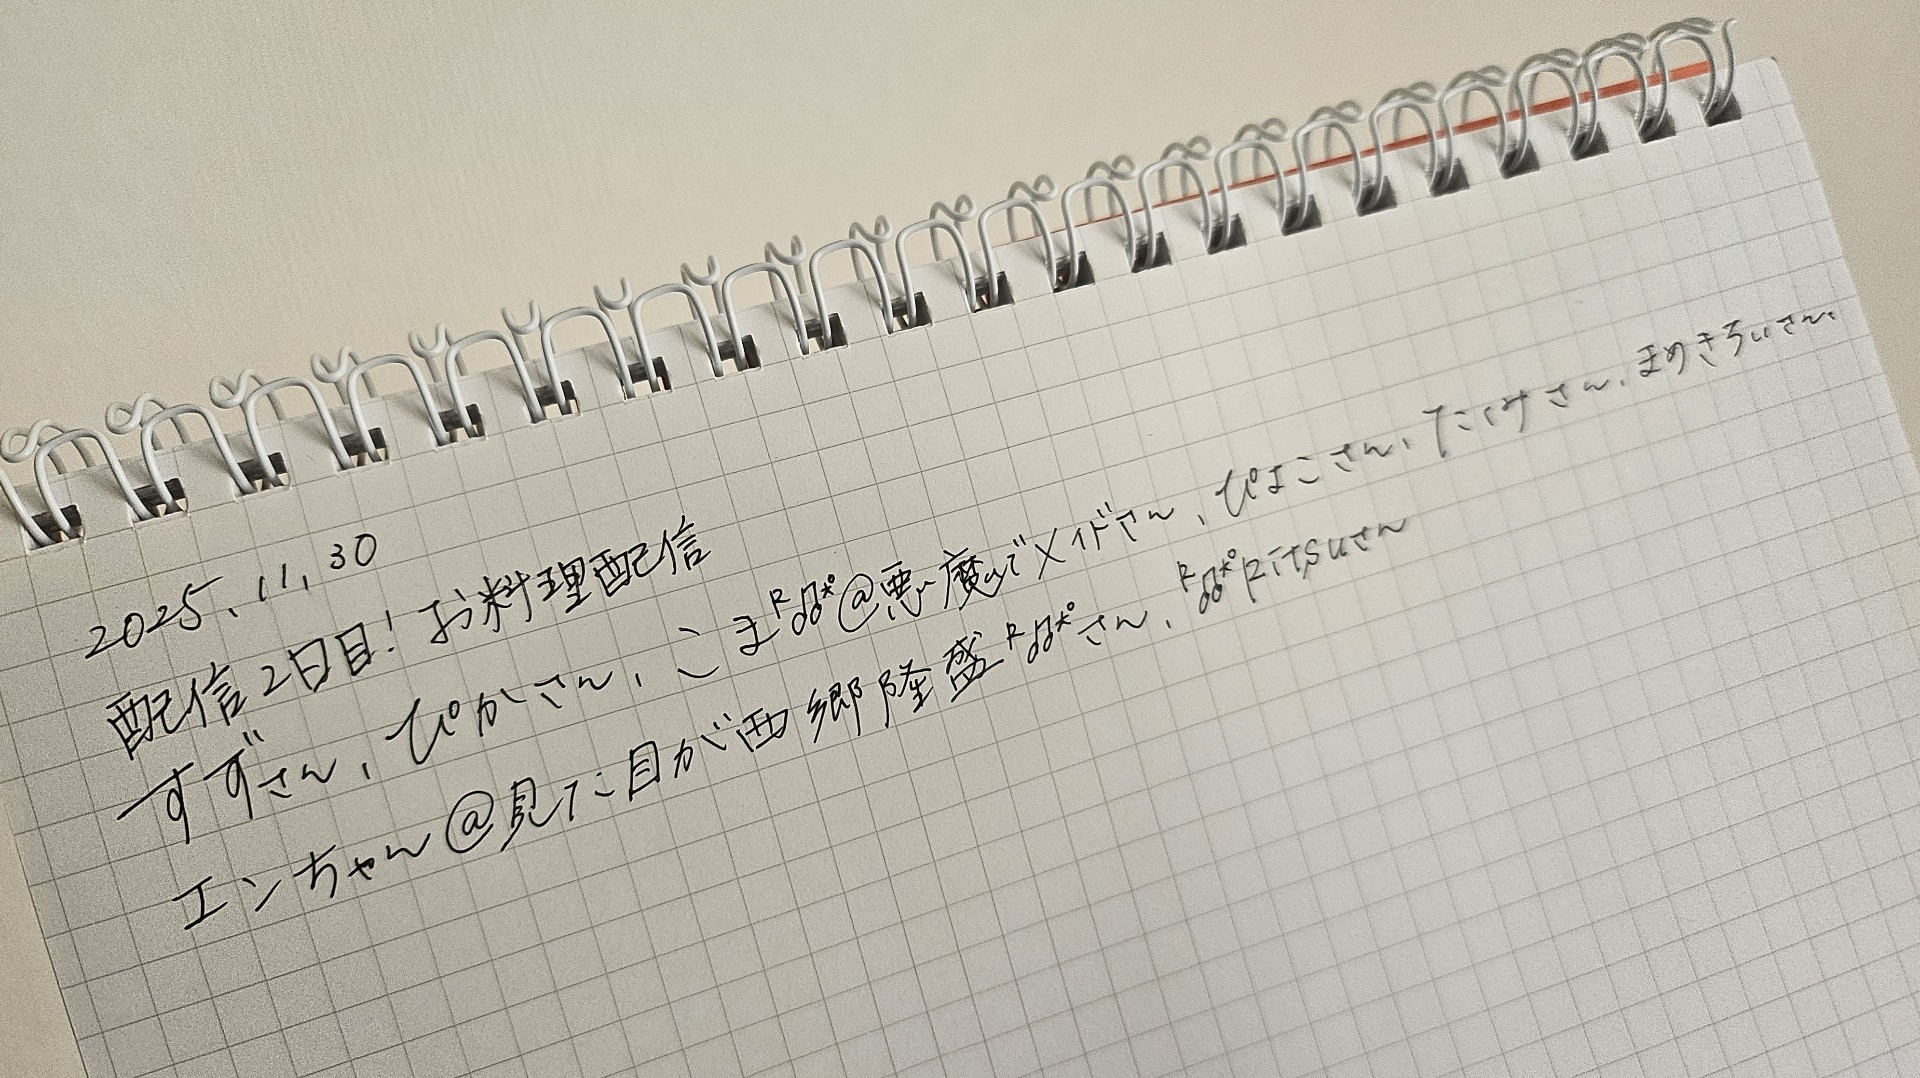 2025.11.30
配信2日目！お料理配信
すずさん、ぴかさん、こま @悪魔でメイドさん、ぴよこさん、たくみさん、まめきちぃさん、
エンちゃん@見た目が西郷隆盛 さん、 Ritsuさん